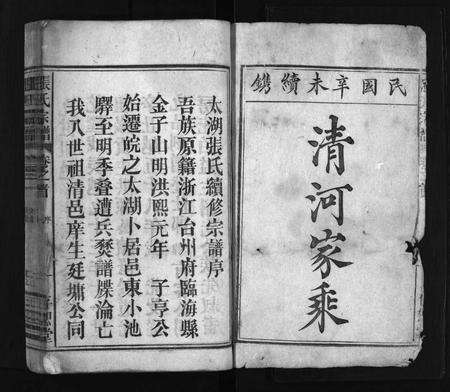 民國辛未續鐫
清河家乘
太湖張氏續修宗譜序
吾族原籍浙江台州府臨海縣
金子山明洪熙元年 子亨公
始遷皖之太湖卜居邑東小池
驛至明季叠遭兵燹譜牒淪亡
我八世祖清邑庠生廷墉公同
張氏宗譜 卷之首 序